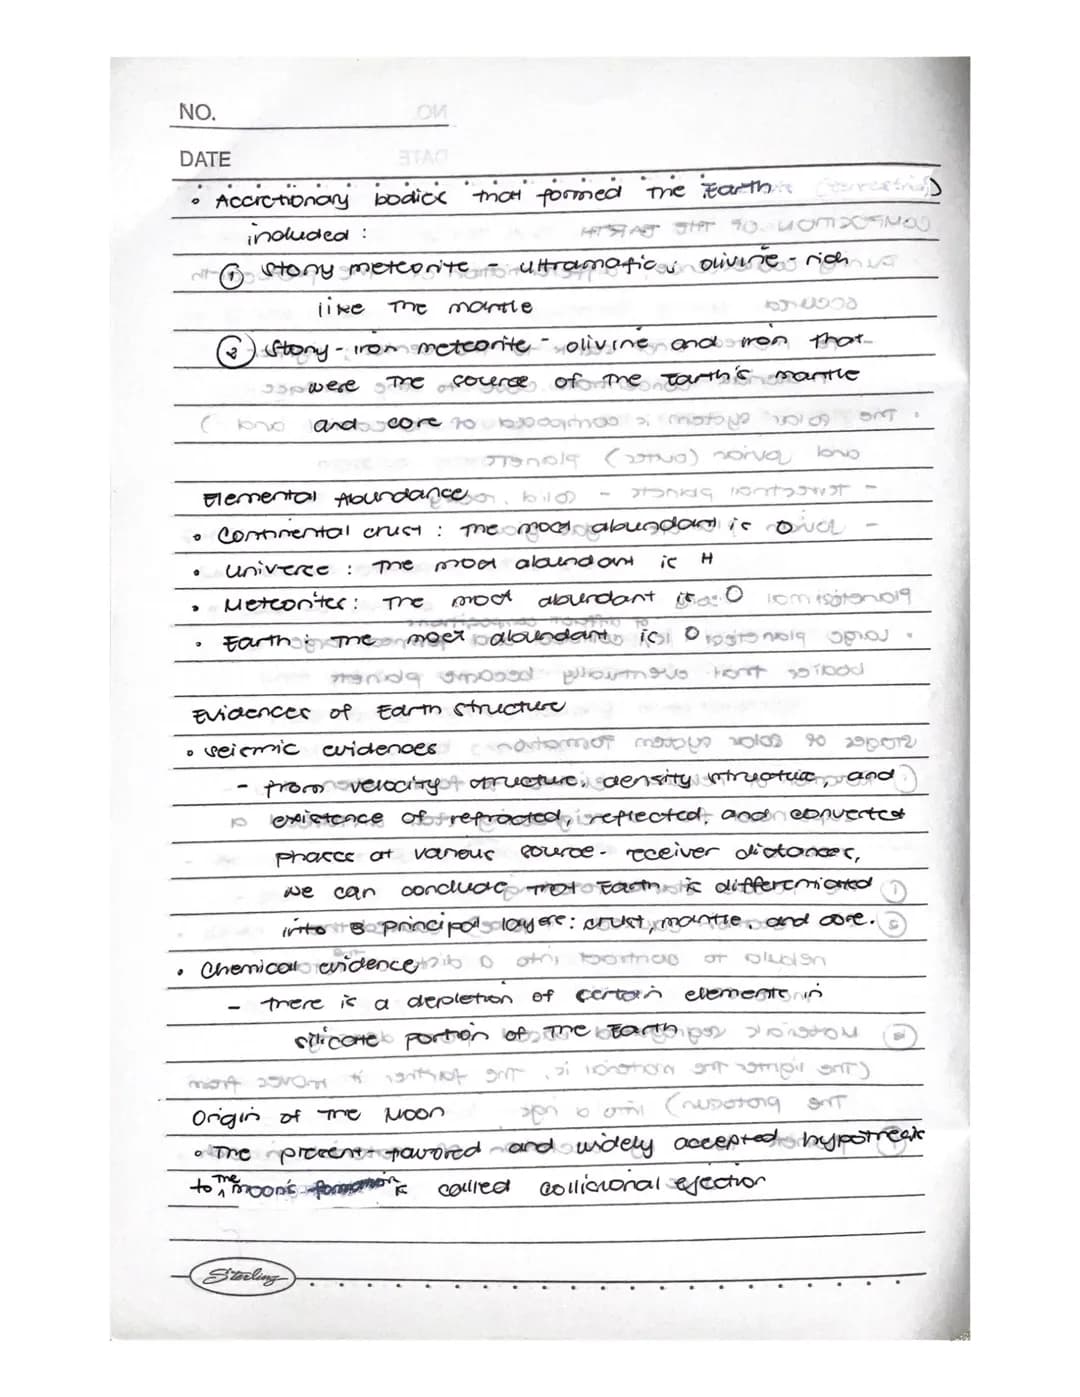 NO.
DATE
• Accretionary bodies that formed the Earth
included :
① Stony meteorite - ultramafic, olivine - rich
like the mantle
② Stony - iron meteorite - olivine and iron that
were the source of the Earth's mantle
and core
Elemental Abundance
• Continental crust : the most abundant is O
• Universe : The most abundant is H
• Meteorites : The most abundant is O
• Earth : The most abundant is O
Evidences of Earth structure
• seismic evidences
- from velocity structure, density structure, and
existence of refracted, reflected, and converted
phases at various source - receiver distances,
we can conclude that Earth is differentiated
into 3 principal layers: crust, mantle, and core.
• Chemical evidence
- there is a depletion of certain elements in
silicate portion of the Earth
Origin of the Moon
• The present-favored and widely accepted
to the moon's formation is called collisional ejection
Sterling